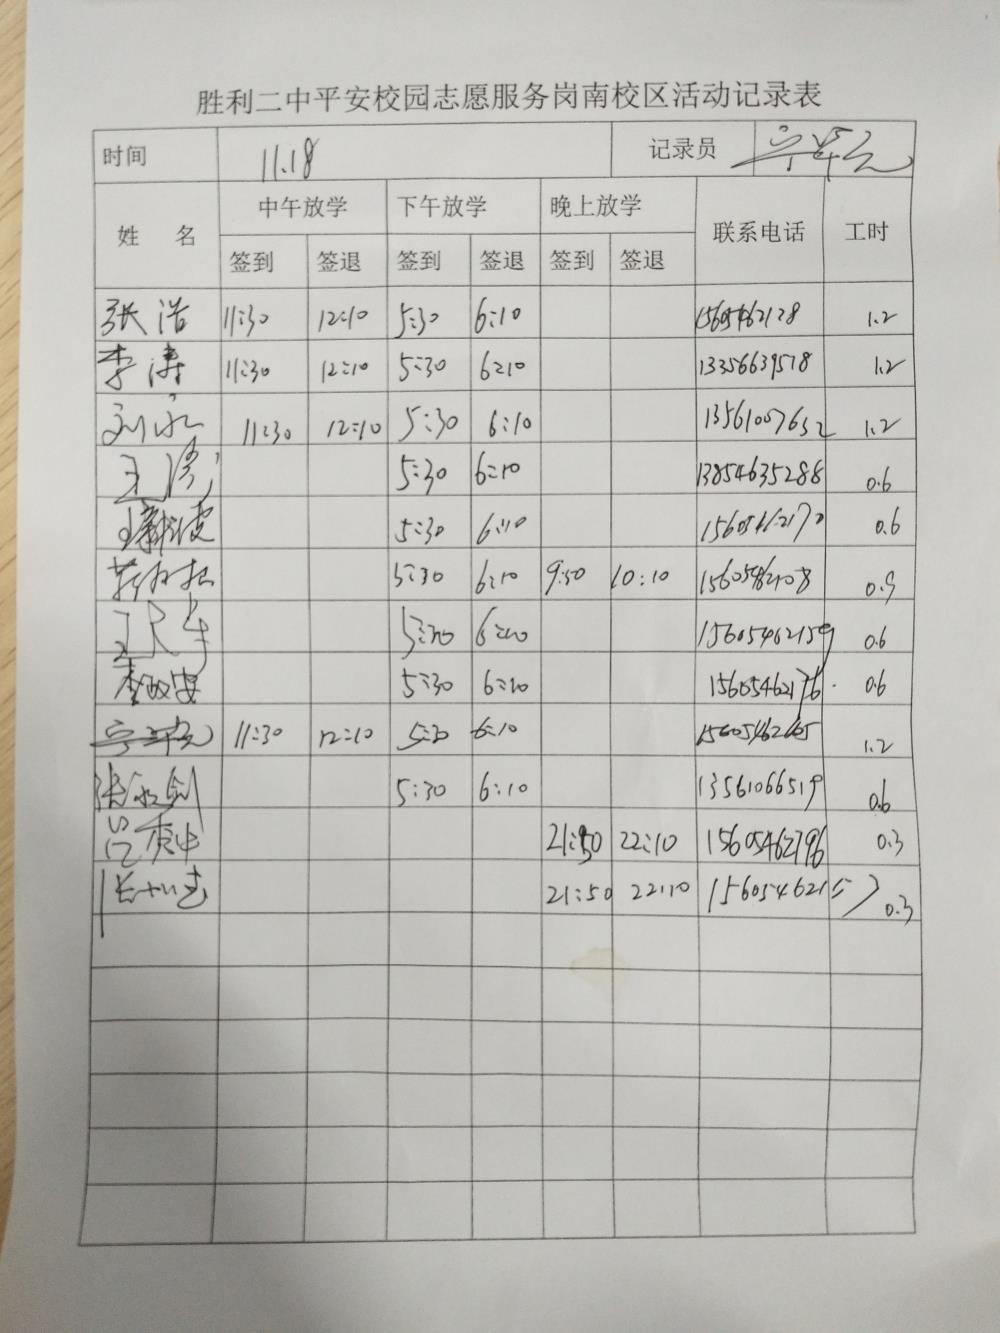 胜利二中平安校园志愿服务岗南校区活动记录表
时间 11.18 记录员
姓 名 中午放学 下午放学 晚上放学 联系电话 工时
签到 签退 签到 签退 签到 签退
张浩 11:30 12:10 5:30 6:10 1.2
李涛 11:30 12:10 5:30 6:10 13356639578 1.2
刘永 11:30 12:10 5:30 6:10 13561007652 1.2
王 5:30 6:10 13854635288 0.6
王 5:30 6:10 15605462170 0.6
5:30 6:10 9:50 10:10 0.9
王 5:30 6:10 15605462159 0.6
李 5:30 6:10 15605462176 0.6
11:30 12:10 5:30 6:10 1.2
张 5:30 6:10 13561066519 0.6
21:50 22:10 15605462796 0.3
张 21:50 22:10 0.3